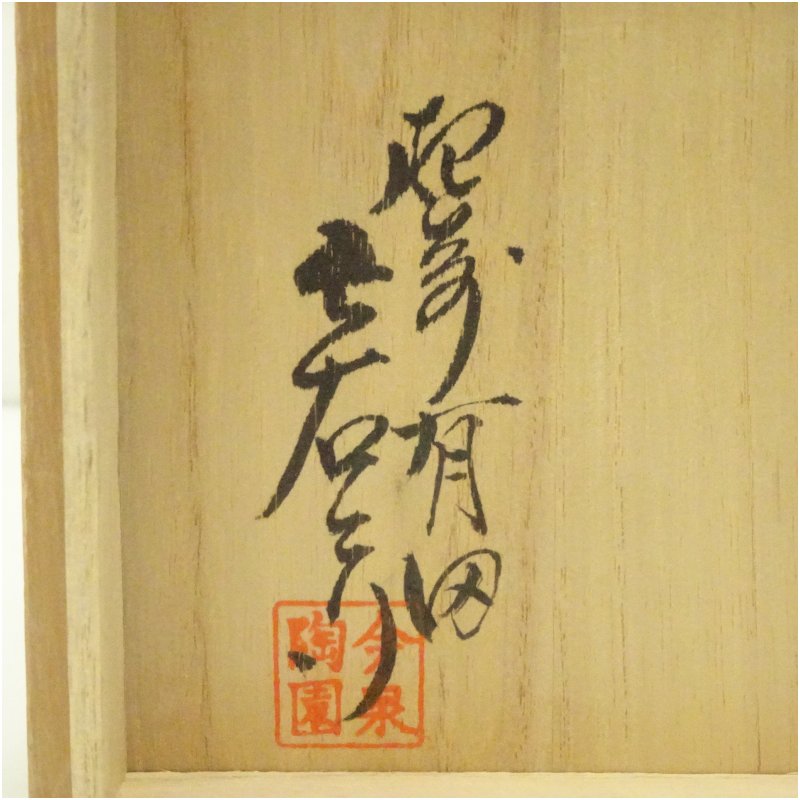 肥前有田
右ヱ門
今泉
陶園